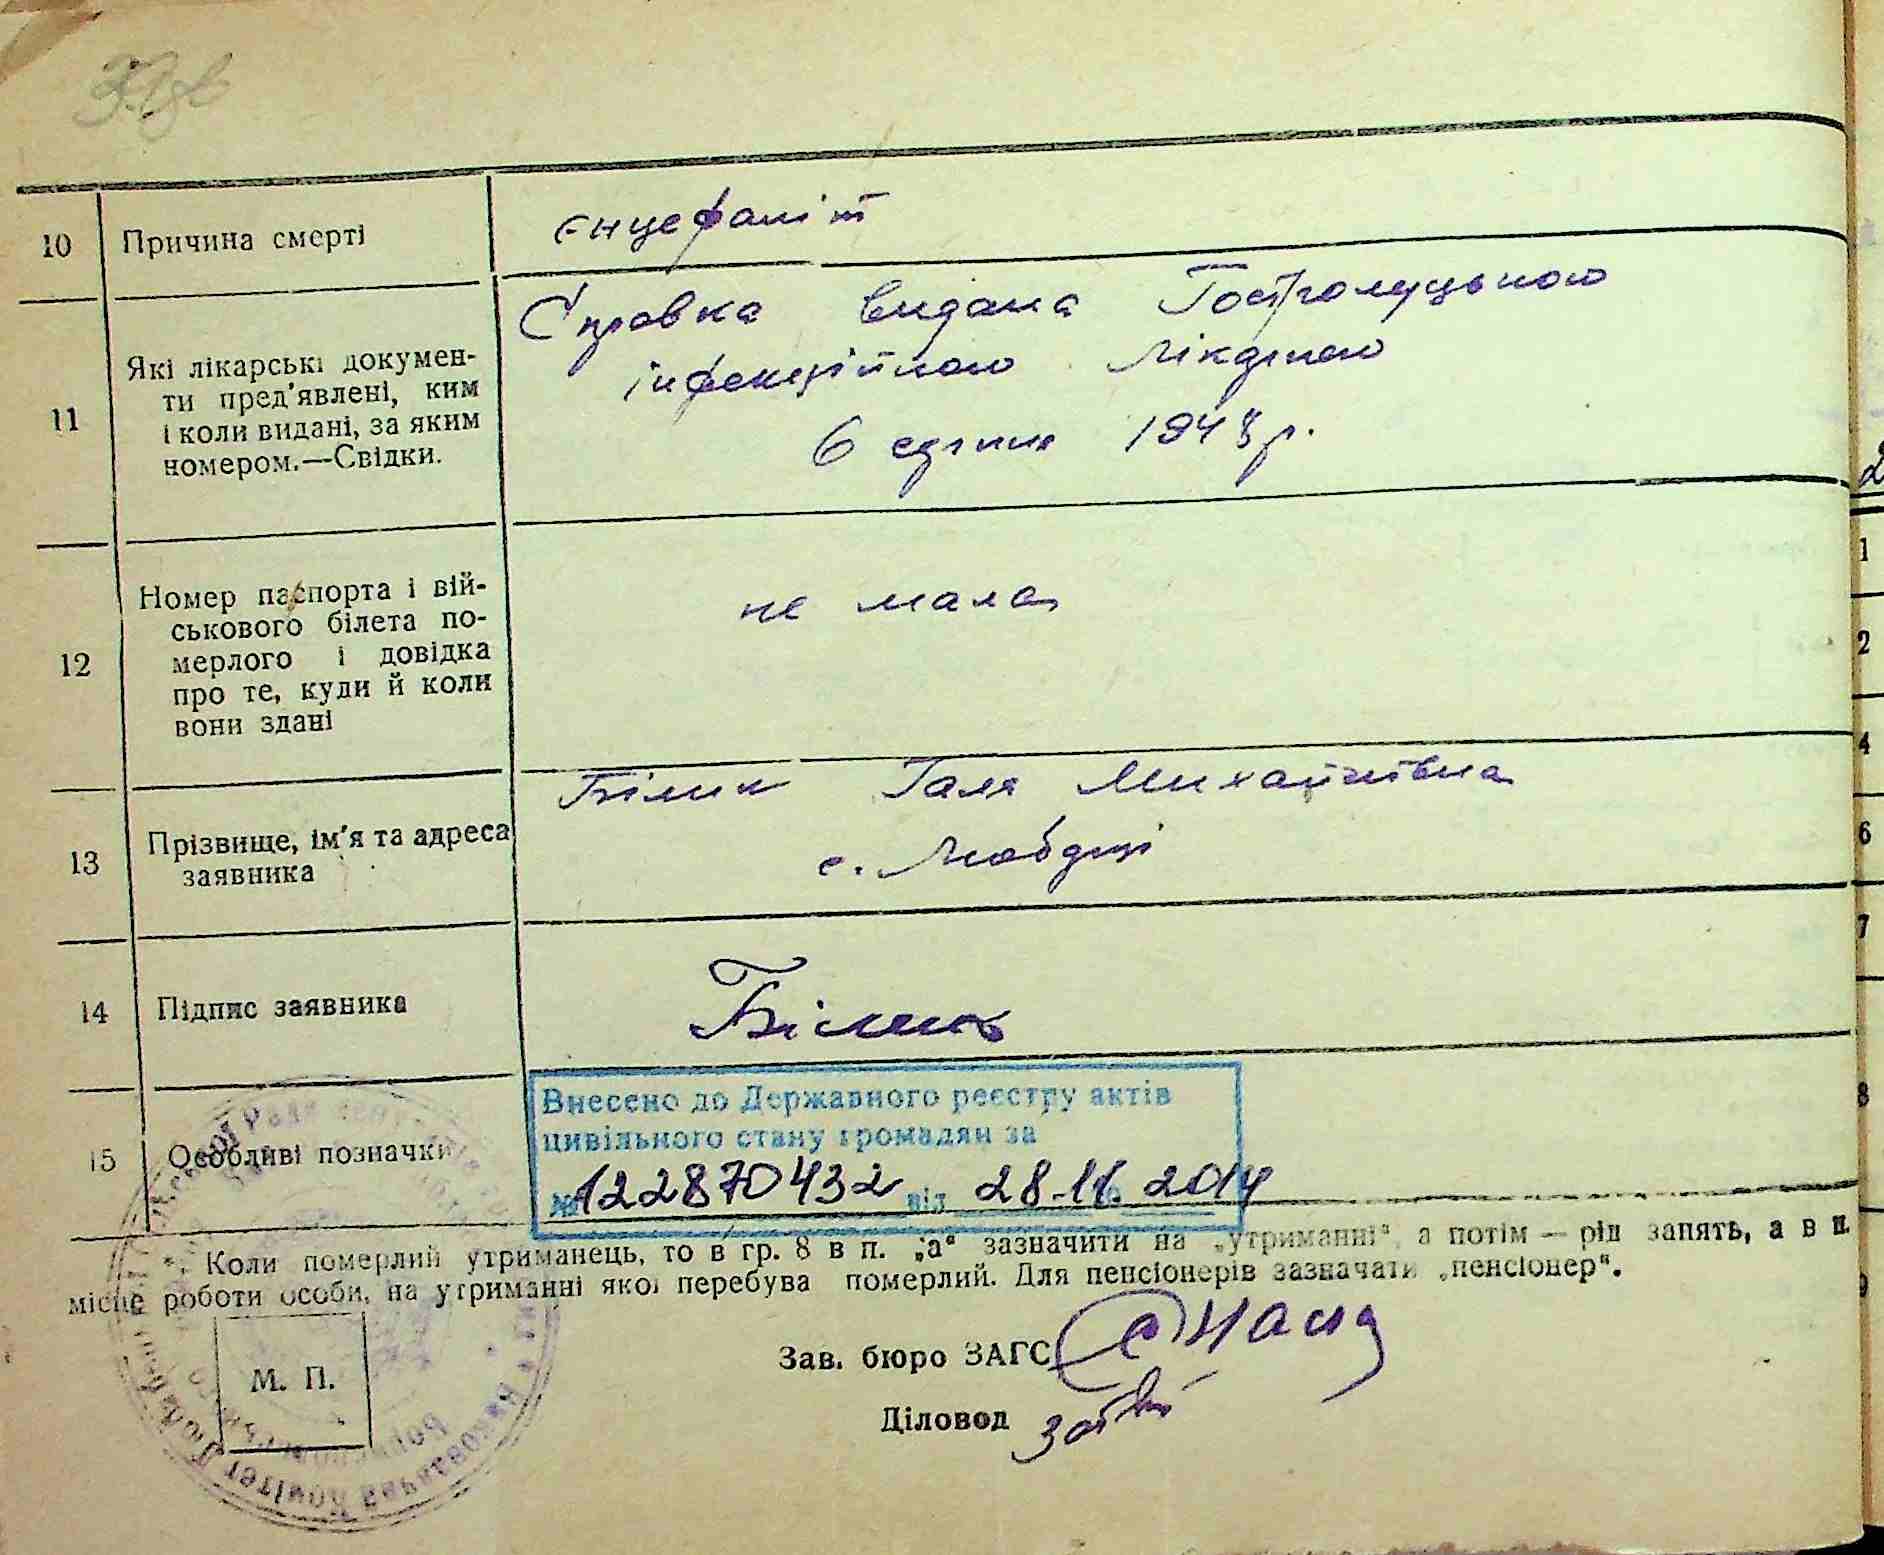 10 Причина смерті енцефаліт
11 Які лікарські докумен-
ти пред'явлені, ким
і коли видані, за яким
номером.—Свідки.
Справка видана Гостролуцькою
інфекційною лікарнею
6 серпня 1948 р.
12 Номер паспорта і вій-
ськового білета по-
мерлого і довідка
про те, куди й коли
вони здані
не мала
13 Прізвище, ім'я та адреса
заявника
Білик Галя Михайлівна
с. Любарці
14 Підпис заявника Білик
15 Особливі позначки
Внесено до Державного реєстру актів
цивільного стану громадян за
№ 122870432 від 28.11.2014
Коли померлий утриманець, то в гр. 8 в п. „а“ зазначити на „утриманні“, а потім — рід занять, а в п.
місце роботи особи, на утриманні якої перебува померлий. Для пенсіонерів зазначати „пенсіонер“.
М. П.
Зав. бюро ЗАГС
Діловод
2
1
2
4
6
7
8
9